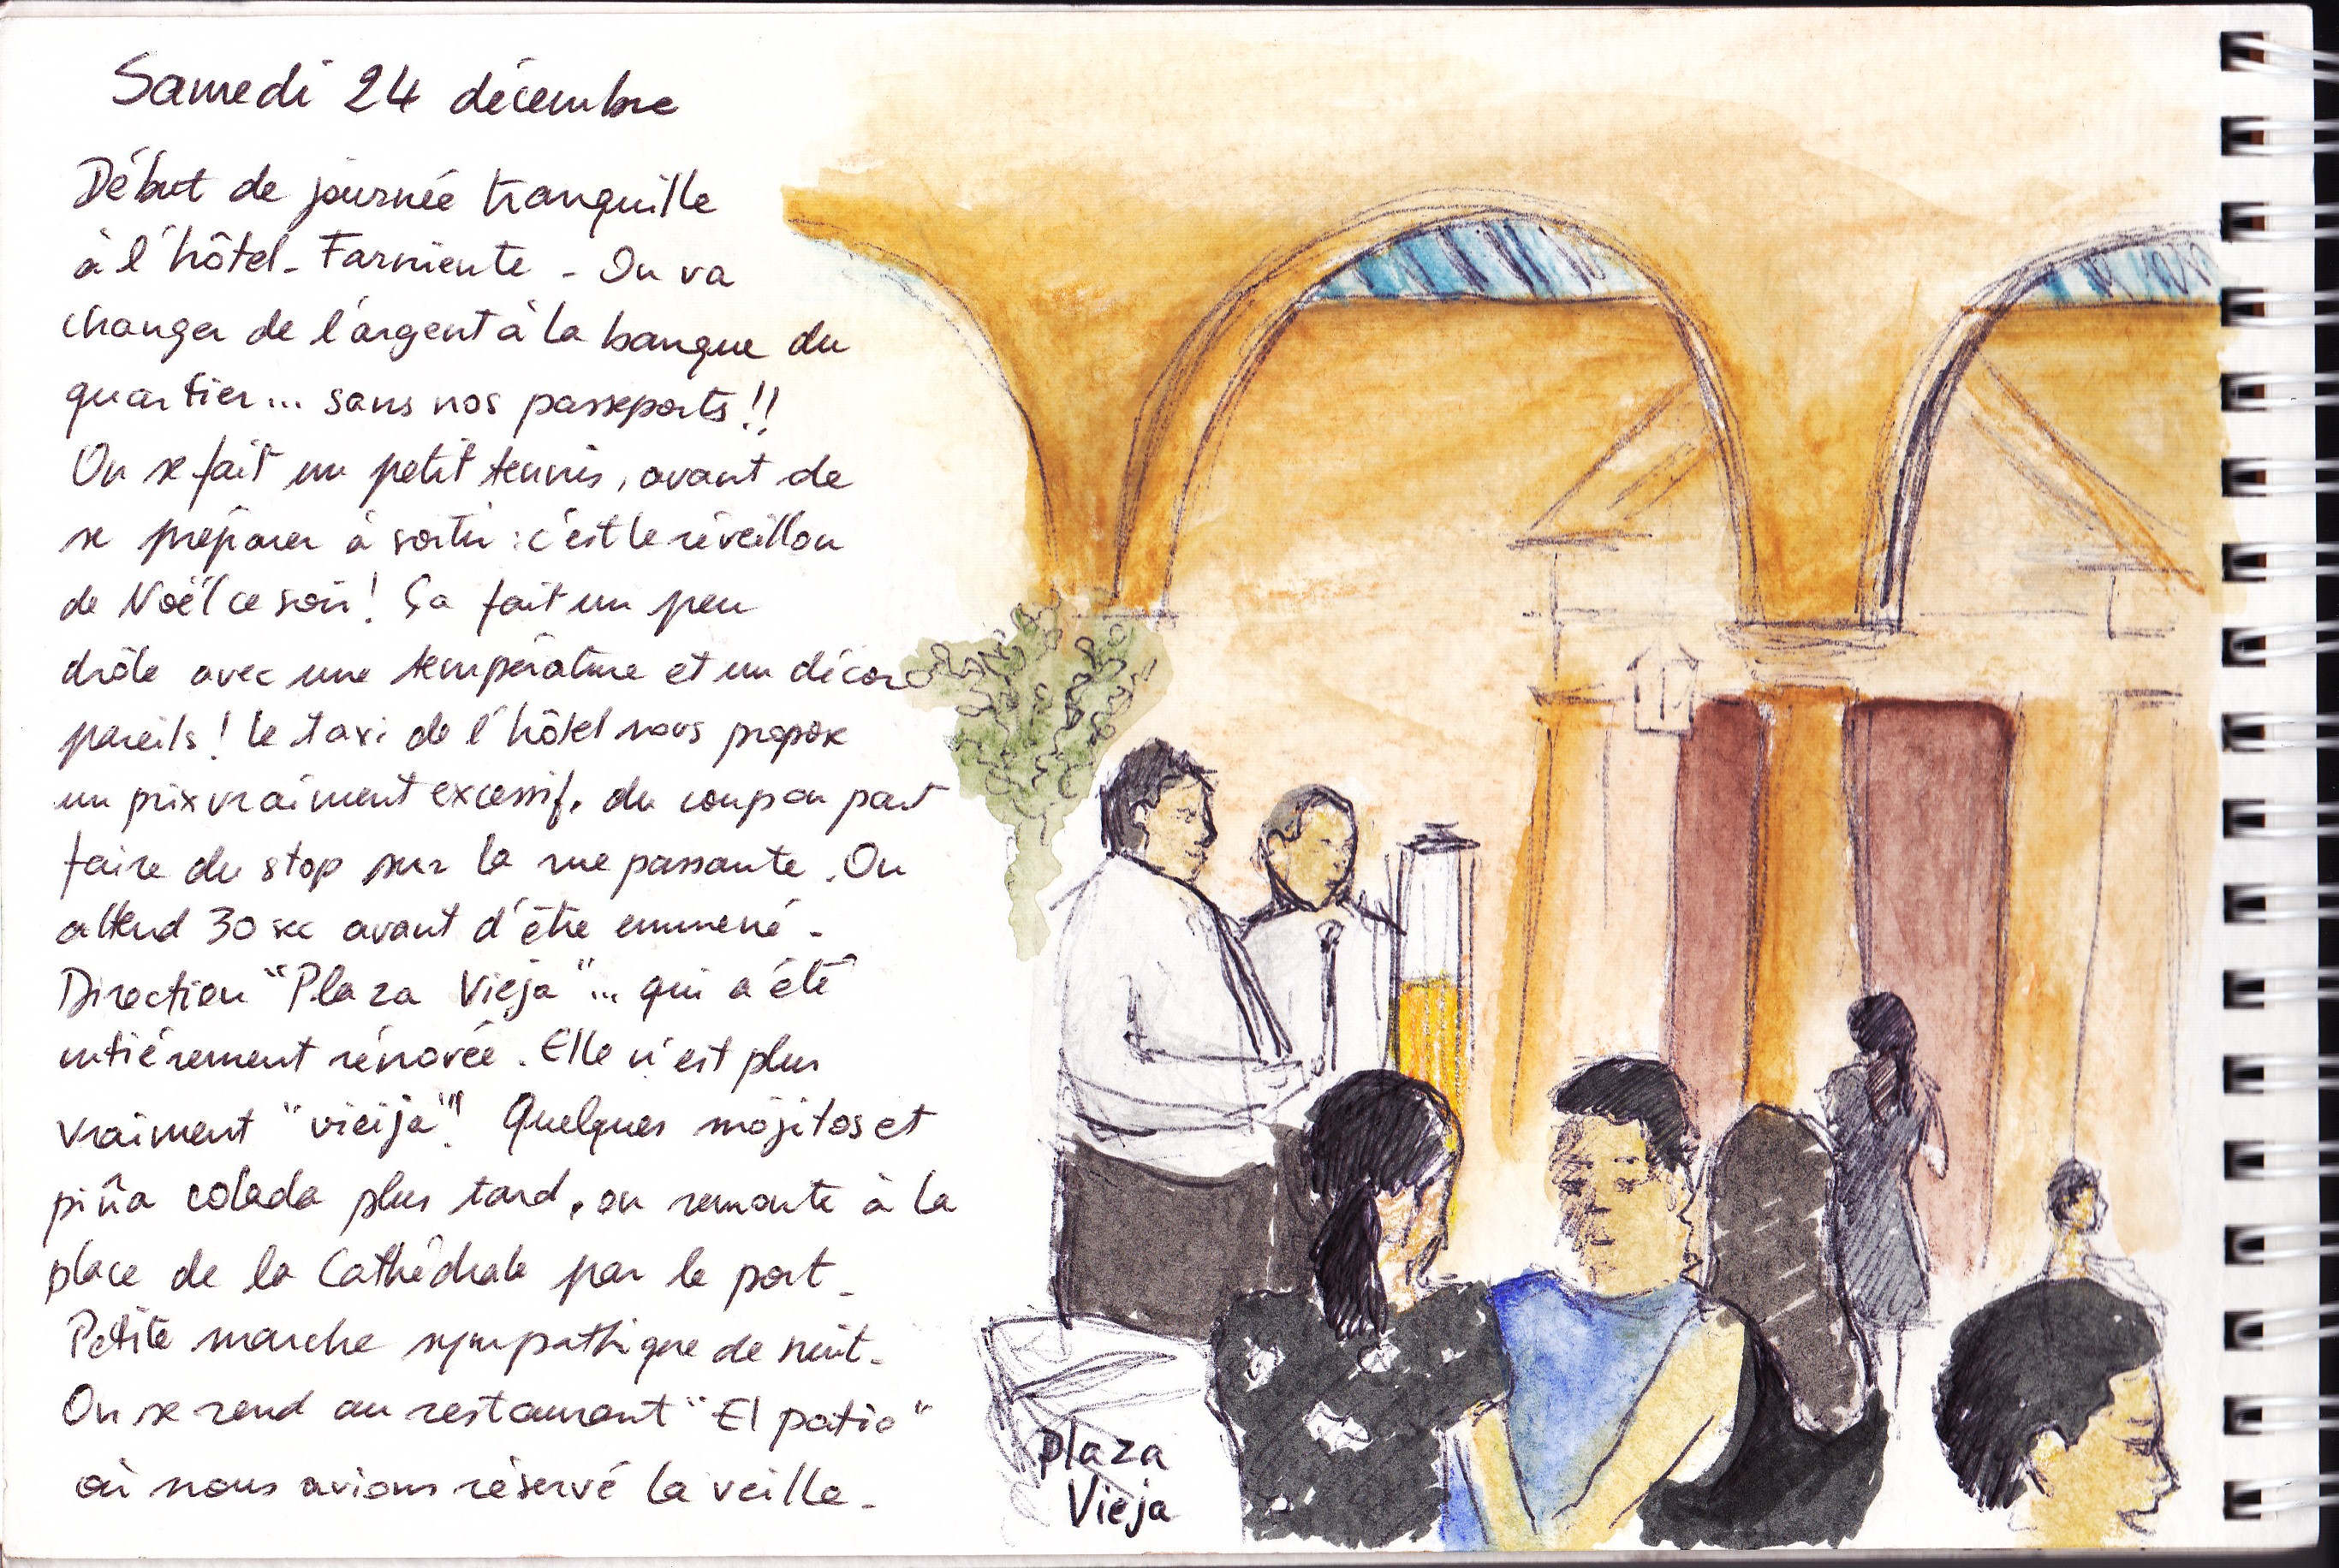 Samedi 24 décembre
Début de journée tranquille
à l'hôtel. Farniente. On va
changer de l'argent à la banque du
quartier... sans nos passeports!!
On se fait un petit tennis, avant de
se préparer à sortir : c'est le réveillon
de Noël ce soir! Ça fait un peu
drôle avec une température et un décor
pareils! Le taxi de l'hôtel nous propose
un prix vraiment excessif. du coup on part
faire du stop sur la rue passante. On
attend 30 sec avant d'être emmené.
Direction "Plaza Vieja"... qui a été
entiérement rénovée. Elle n'est plus
vraiment "vieija"! Quelques mojitos et
piña colada plus tard, on remonte à la
place de la Cathédrale par le port.
Petite marche sympathique de nuit.
On se rend au restaurant "El patio"
où nous avions réservé la veille.
plaza
Vieja